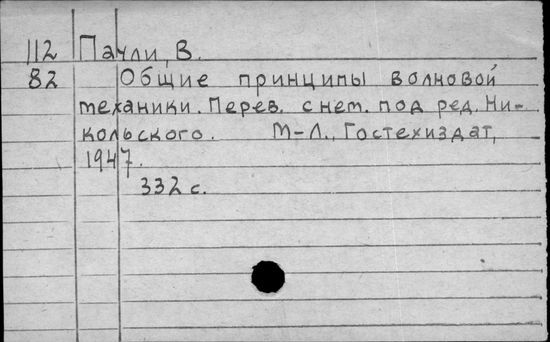 112 Паули, В.
82 Общие принципы волновой
механики. Перев. с нем. под ред. Ни-
кольского. М-Л., Гостехиздат,
1947.
332 с.